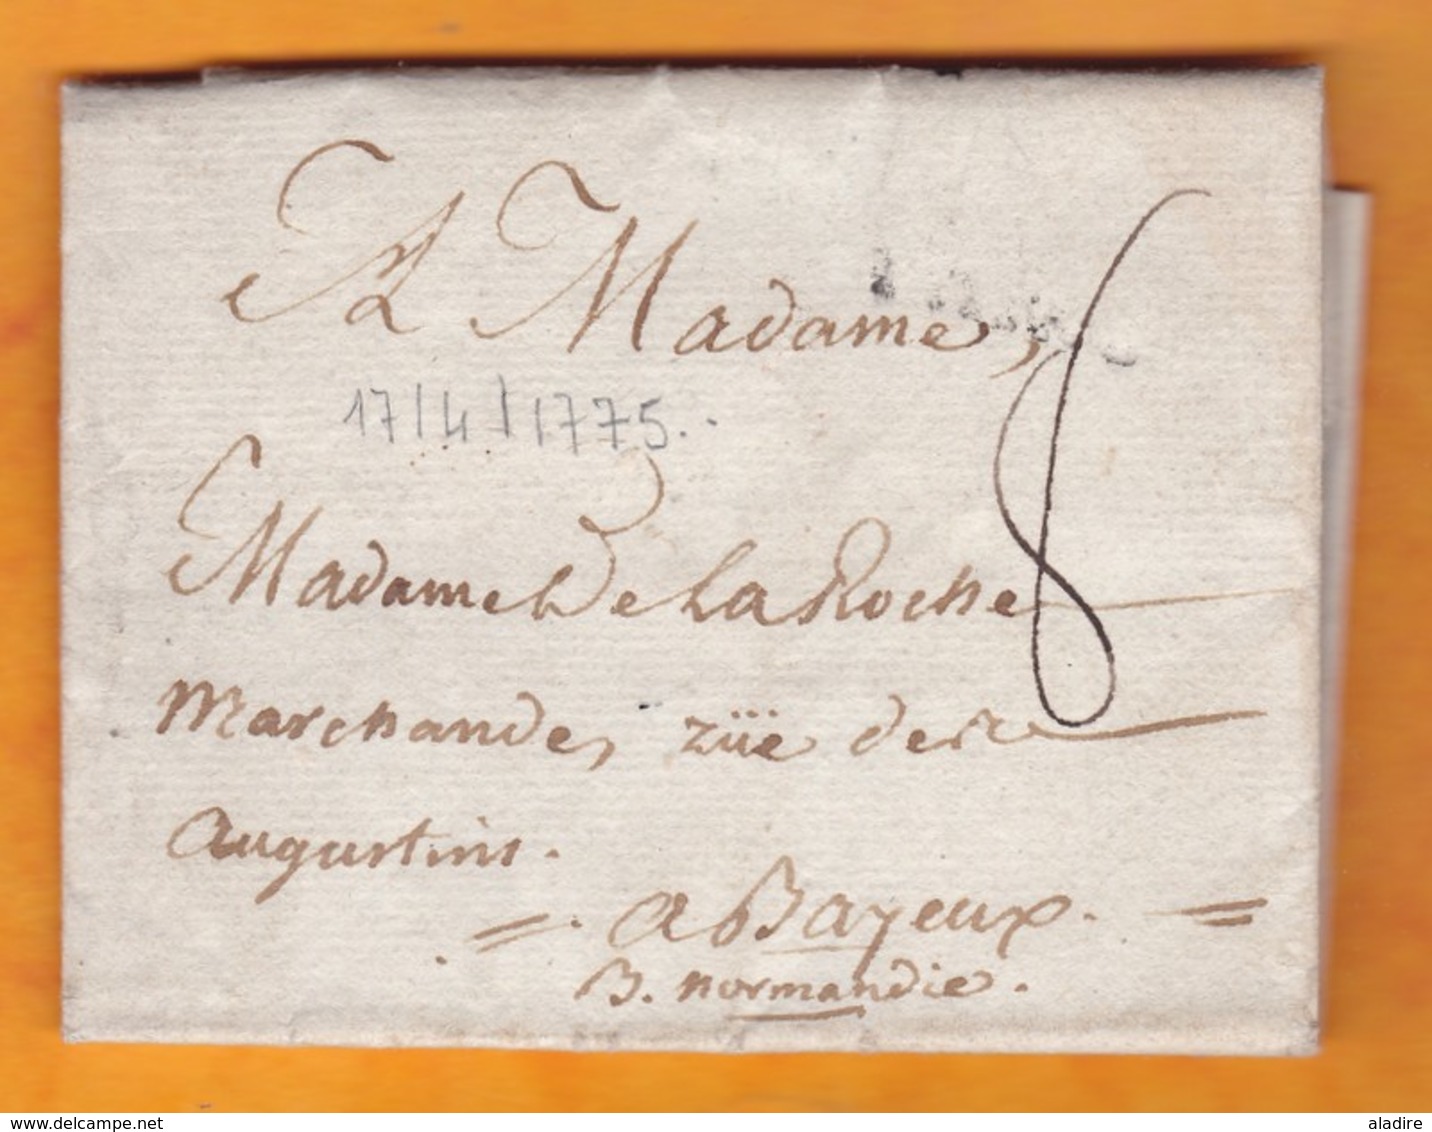 A Madame,
17/4/1775..
Madame De La Roche
Marchande, rüe des
Augustins.
= . a Bayeux. =
B. normandie.
8
delcampe.net
aladire